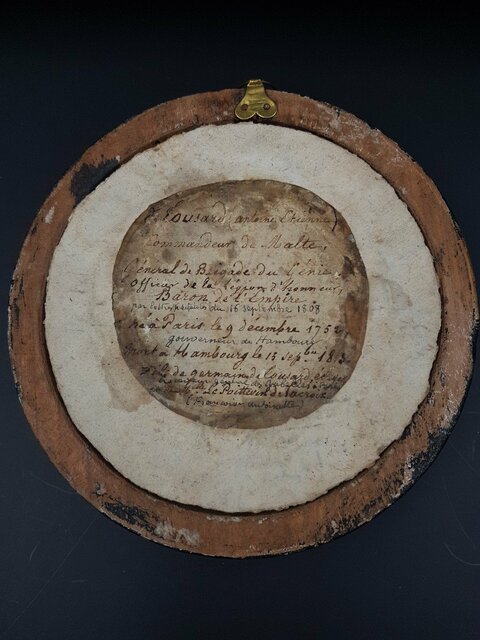 (antoine Etienne)
Commandeur de Malte,
Général de Brigade du Génie,
Officier de la légion d'honneur,
Baron de l'Empire
par lettres patentes du 16 septembre 1808
né à Paris le 9 décembre 1752
gouverneur de Hambourg
mort à Hambourg le 15 sep.bre
de germain
général
Le Poittevin de la croix